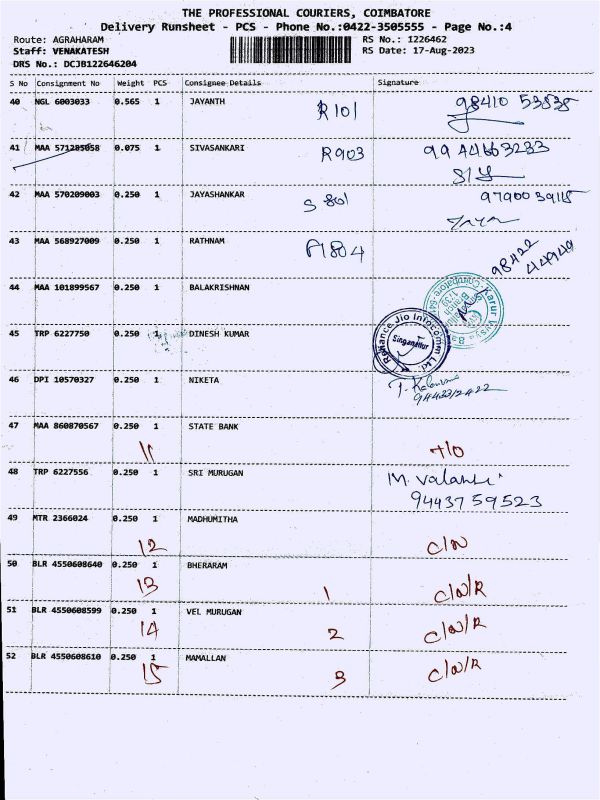 THE PROFESSIONAL COURIERS, COIMBATORE
Delivery Runsheet - PCS - Phone No.:0422-3505555 - Page No.:4
Route: AGRAHARAM RS No.: 1226462
Staff: VENAKATESH RS Date: 17-Aug-2023
DRS No.: DCJB122646204
S No Consignment No Weight PCS Consignee Details Signature
40 NGL 6003033 0.565 1 JAYANTH R101 98410 53838
41 MAA 571285058 0.075 1 SIVASANKARI R903 99 44663233
42 MAA 570209003 0.250 1 JAYASHANKAR S 801 9790039115
Jaya
43 MAA 568927009 0.250 1 RATHNAM A804 98422
44949
44 MAA 101899567 0.250 1 BALAKRISHNAN
Karur Vysya
45 TRP 6227750 0.250 1 DINESH KUMAR
Reliance Jio Infocomm Ltd.
Singanallur
46 DPI 10570327 0.250 1 NIKETA
47 MAA 860870567 0.250 1 STATE BANK
11 T/O
48 TRP 6227556 0.250 1 SRI MURUGAN M. Valarsi
94437 59523
49 MTR 2366024 0.250 1 MADHUMITHA
12 C/N
50 BLR 4550608640 0.250 1 BHERARAM
13 1 C/N/R
51 BLR 4550608599 0.250 1 VEL MURUGAN
14 2 C/N/R
52 BLR 4550608610 0.250 1 MAMALLAN
15 3 C/N/R